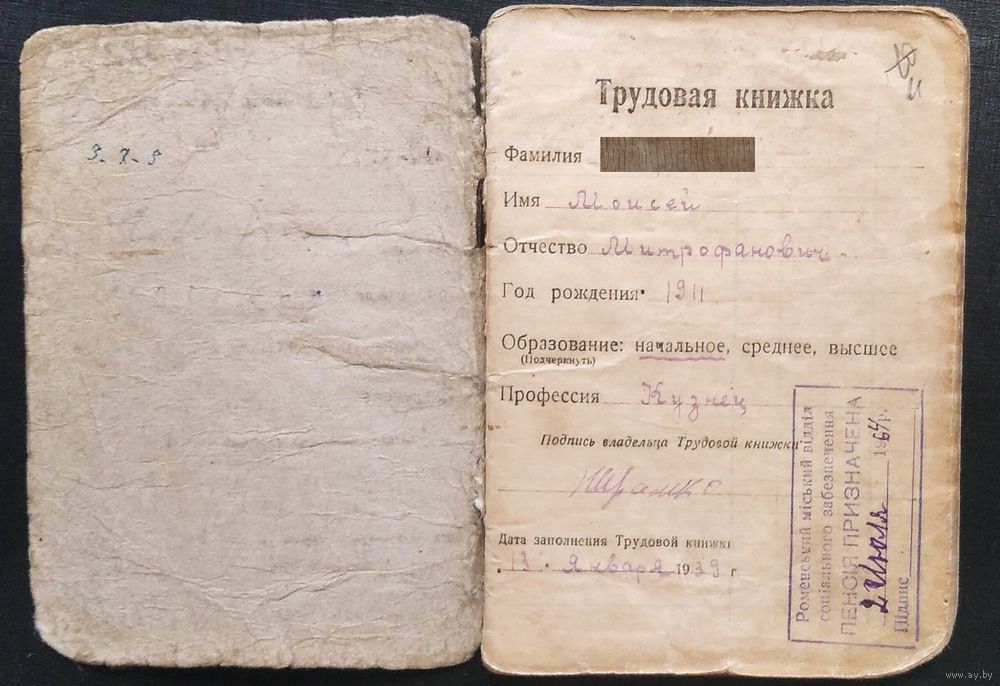 3-7-3
Трудовая книжка
Фамилия
Имя Моисей
Отчество Митрофанович
Год рождения 1911
Образование: начальное, среднее, высшее
(Подчеркнуть)
Профессия Кузнец
Подпись владельца Трудовой книжки
Дата заполнения Трудовой книжки
13 Января 1939 г
Роменський міський відділ
соціяльного забезпечення
ПЕНСІЯ ПРИЗНАЧЕНА
2 Июля 1964 р.
Підпис
www.ay.by